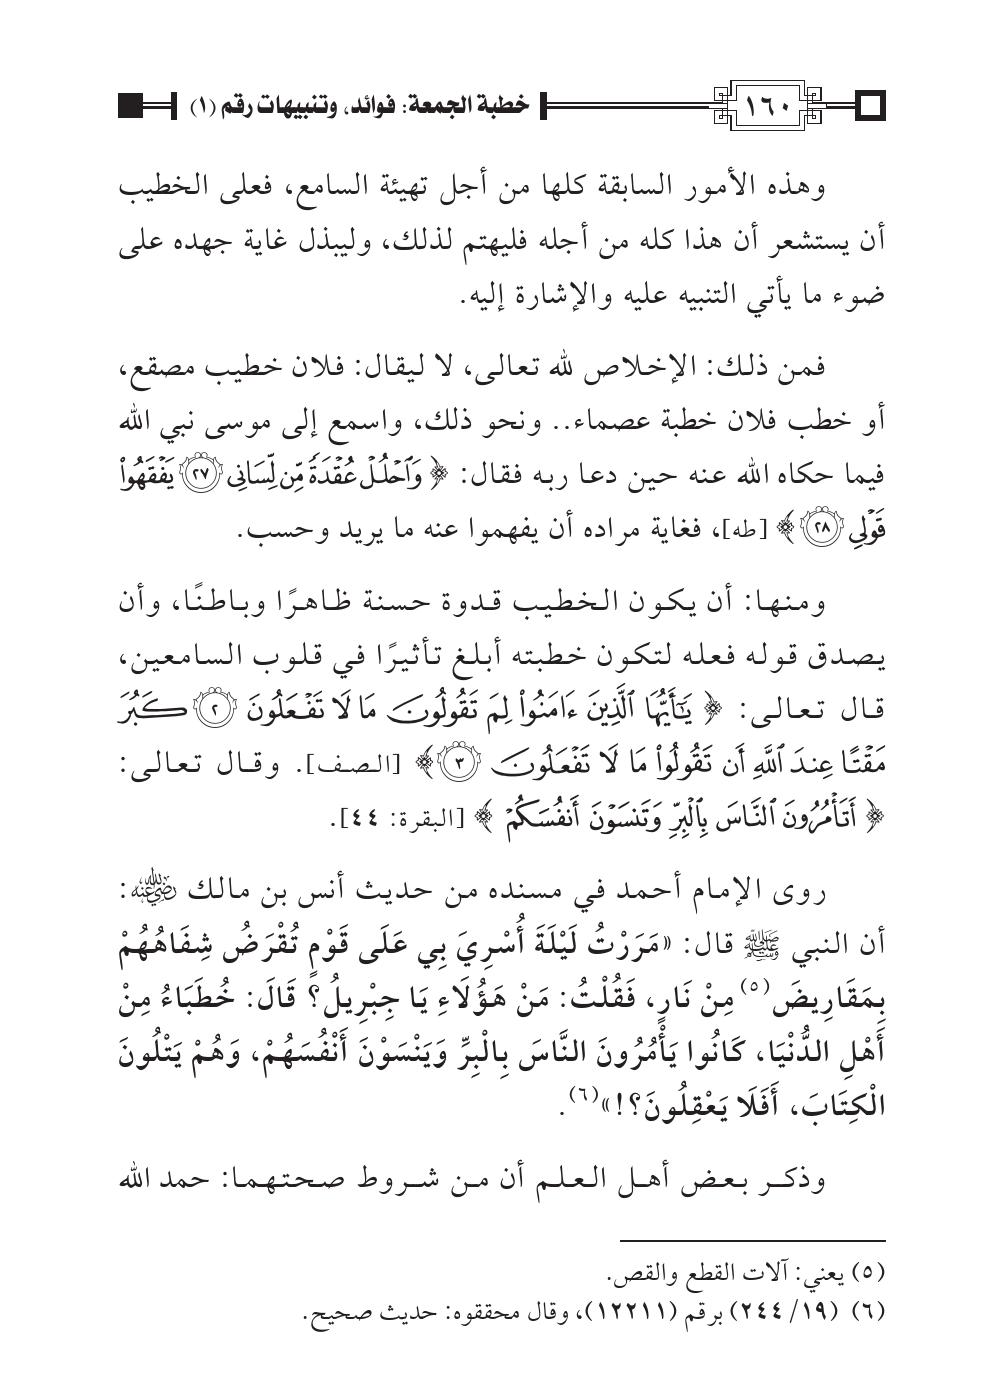 ١٦٠ خطبة الجمعة: فوائد، وتنبيهات رقم (١)
وهذه الأمور السابقة كلها من أجل تهيئة السامع، فعلى الخطيب
أن يستشعر أن هذا كله من أجله فليهتم لذلك، وليبذل غاية جهده على
ضوء ما يأتي التنبيه عليه والإشارة إليه.
فمن ذلك: الإخلاص لله تعالى، لا ليقال: فلان خطيب مصقع،
أو خطب فلان خطبة عصماء.. ونحو ذلك، واسمع إلى موسى نبي الله
فيما حكاه الله عنه حين دعا ربه فقال: ﴿ وَٱحۡلُلۡ عُقۡدَةٗ مِّن لِّسَانِي ٢٧ يَفۡقَهُواْ
قَوۡلِي ٢٨ ﴾ [طه]، فغاية مراده أن يفهموا عنه ما يريد وحسب.
ومنها: أن يكون الخطيب قدوة حسنة ظاهرًا وباطنًا، وأن
يصدق قوله فعله لتكون خطبته أبلغ تأثيرًا في قلوب السامعين،
قال تعالى: ﴿ يَٰٓأَيُّهَا ٱلَّذِينَ ءَامَنُواْ لِمَ تَقُولُونَ مَا لَا تَفۡعَلُونَ ٢ كَبُرَ
مَقۡتًا عِندَ ٱللَّهِ أَن تَقُولُواْ مَا لَا تَفۡعَلُونَ ٣ ﴾ [الصف]. وقال تعالى:
﴿ أَتَأۡمُرُونَ ٱلنَّاسَ بِٱلۡبِرِّ وَتَنسَوۡنَ أَنفُسَكُمۡ ﴾ [البقرة: ٤٤].
روى الإمام أحمد في مسنده من حديث أنس بن مالك رضي الله عنه:
أن النبي ﷺ قال: «مَرَرْتُ لَيْلَةَ أُسْرِيَ بِي عَلَى قَوْمٍ تُقْرَضُ شِفَاهُهُمْ
بِمَقَارِيضَ(٥) مِنْ نَارٍ، فَقُلْتُ: مَنْ هَؤُلَاءِ يَا جِبْرِيلُ؟ قَالَ: خُطَبَاءُ مِنْ
أَهْلِ الدُّنْيَا، كَانُوا يَأْمُرُونَ النَّاسَ بِالْبِرِّ وَيَنْسَوْنَ أَنْفُسَهُمْ، وَهُمْ يَتْلُونَ
الْكِتَابَ، أَفَلَا يَعْقِلُونَ؟!»(٦).
وذكر بعض أهل العلم أن من شروط صحتهما: حمد الله
(٥) يعني: آلات القطع والقص.
(٦) (١٩/ ٢٤٤) برقم (١٢٢١١)، وقال محققوه: حديث صحيح.